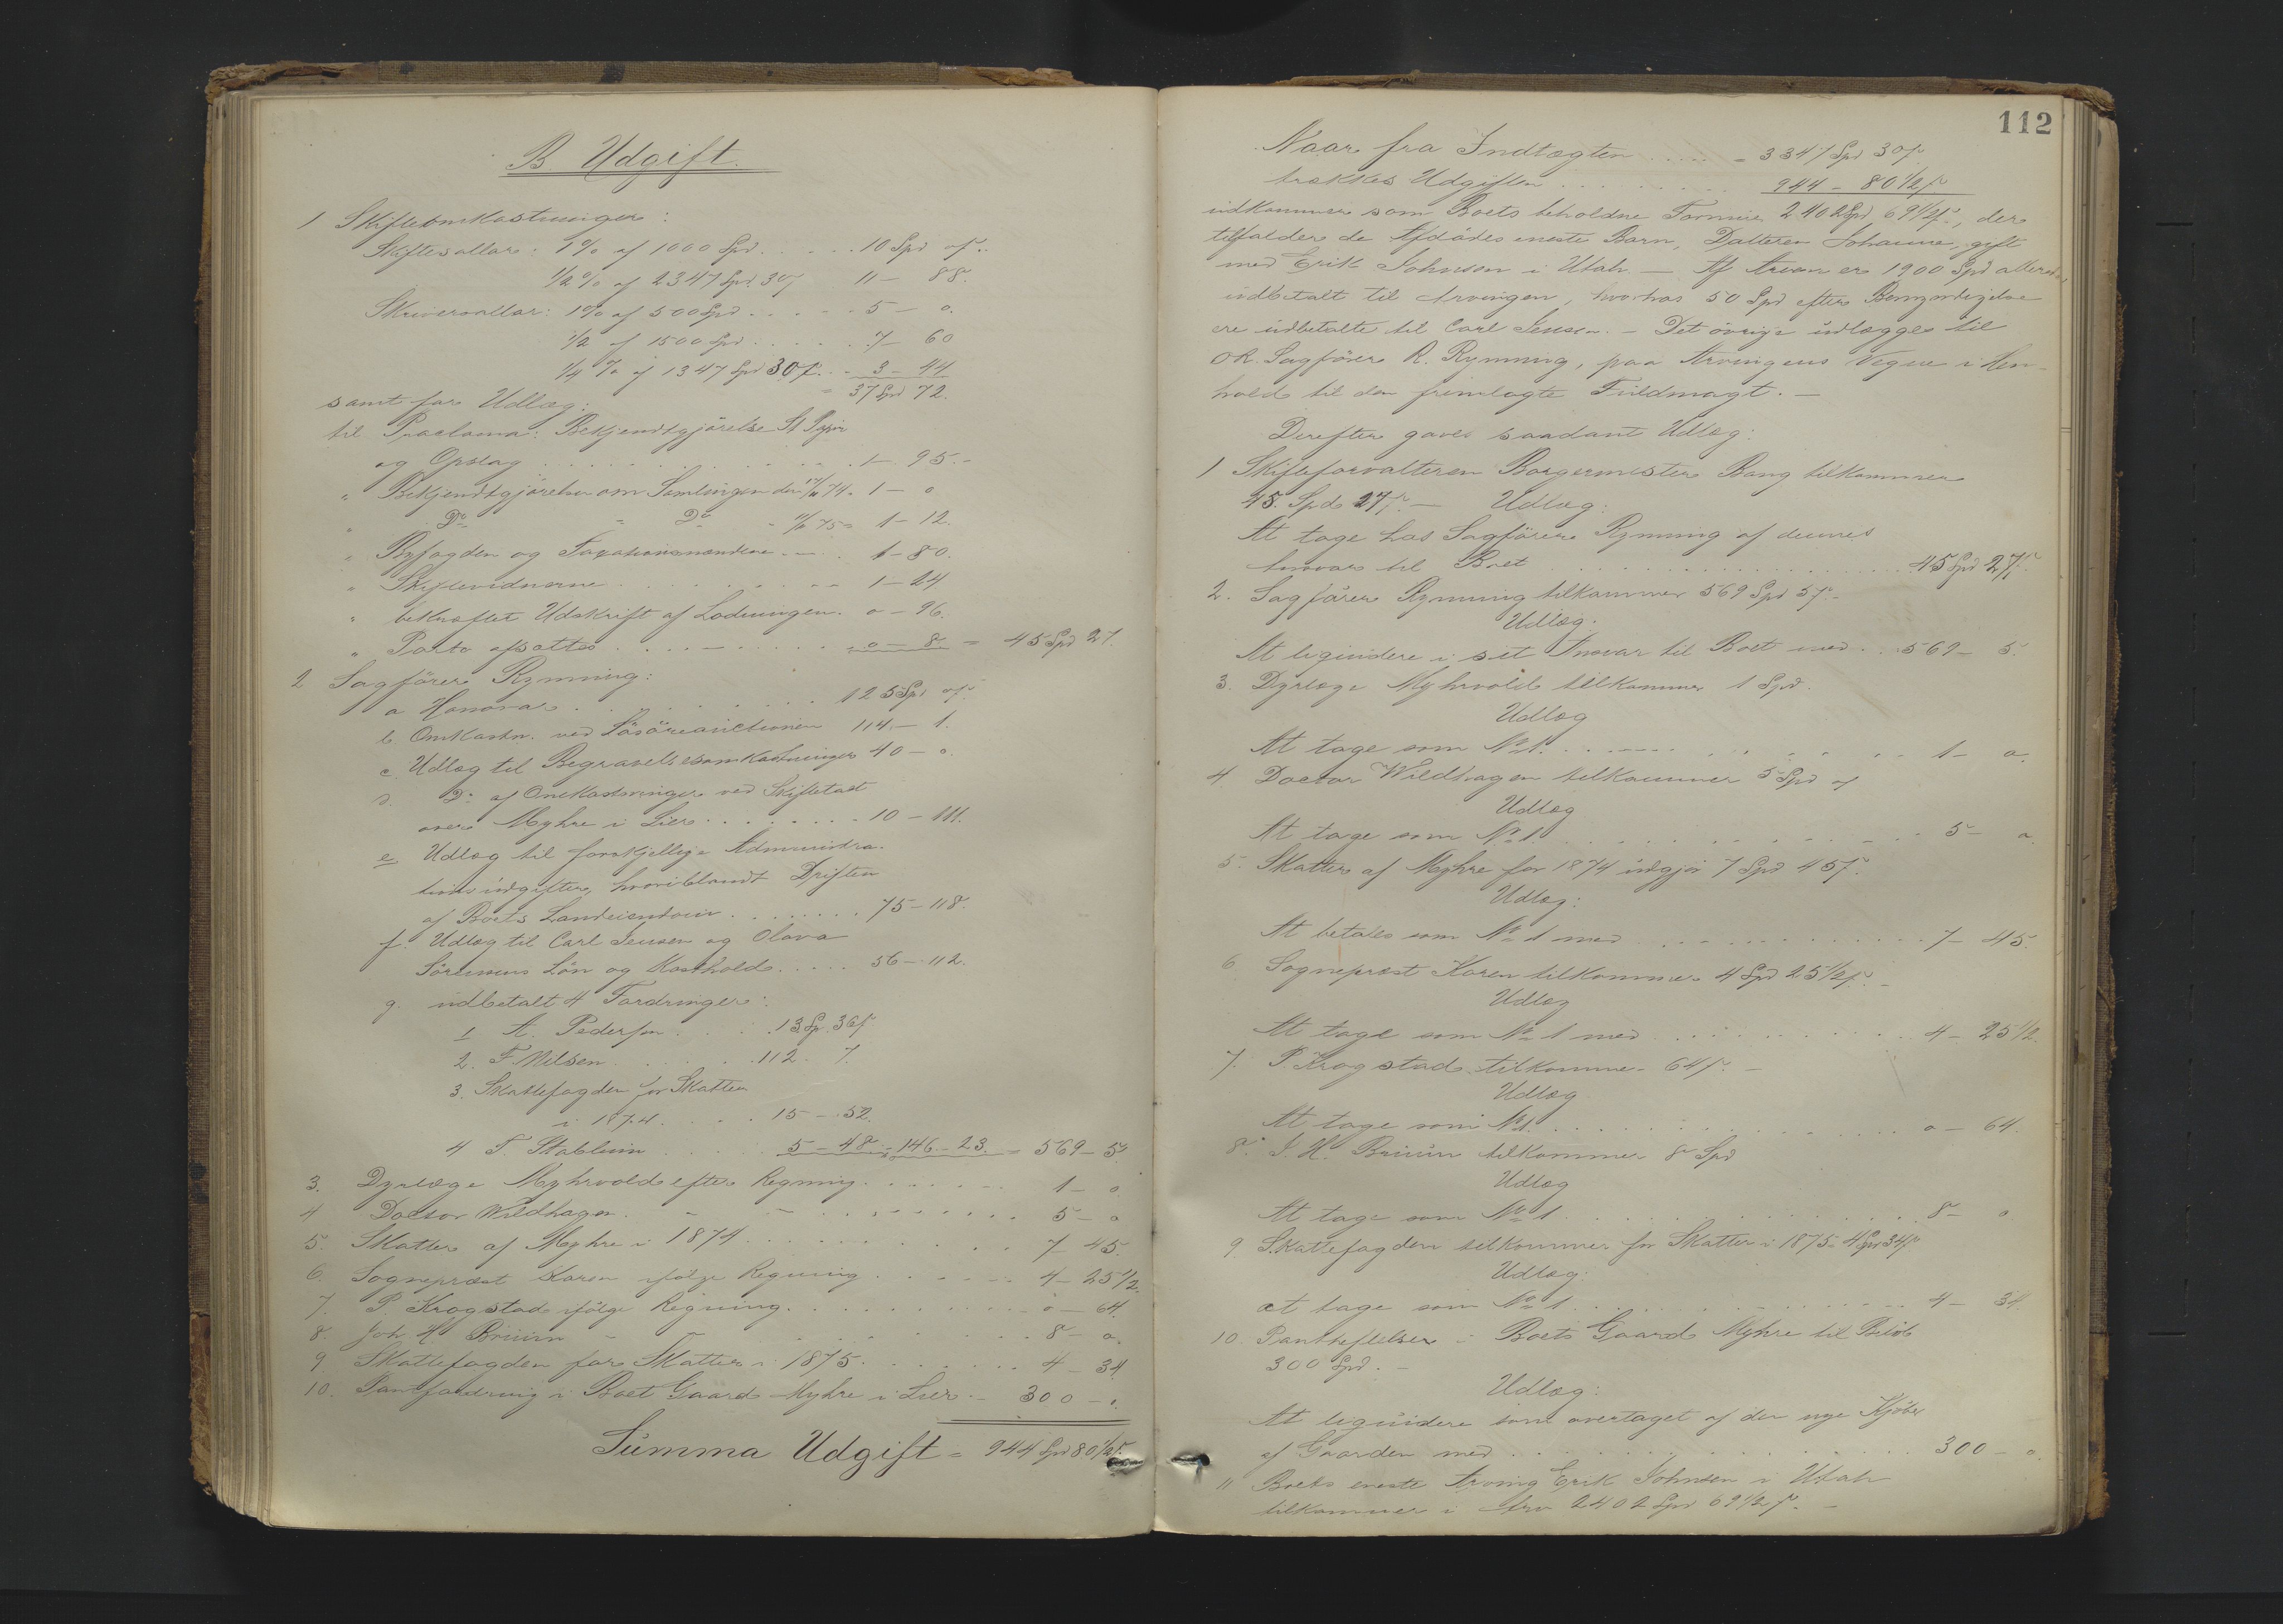 B. Udgift.
1 Skifteomkostninger:
Skiftesallar: 1% af 1000 Spd. . . . . 10 Spd oſs.
1/2% af 2347 Spd. 30ſs 11 - 88.
Skriversallar: 1% af 500 Spd . . . . . 5 - o.
1/2 af 1500 Spd . . . . . 7 - 60
1/4 % af 1347 Spd 30ſs. . . 3 - 44
= 37 Spd 72.
samt for Udlæg:
til Proclama: Bekjendtgjörelse
og Opslag . . . . . . . . . . . 1 - 95.-
" Bekjendtgjörelse om Samlingen den 74. 1 - o
" Do " Do - 75 = 1 - 12.
" Byfogden og Taxationsmændene . - . 1 - 80.
" Skiftevidnerne . . . . . . . . 1 - 24
" bekræftet Udskrift af Lodningen. o - 96.
" Porto afsættes . . . . . . . . . . o - 8 = 45 Spd 27.
2 Sagförer Rynning:
a Honorar . . . . . . . . . 125 Spd oſs.
b. Omkostn. ved Lösöreauctionen 114 - 1.
c. Udlæg til Begravelsesomkostninger 40 - o.
d. Do af Omkostninger ved Skiftetaxt
over Myhre i Lier . . . . . . . . 10 - 111.
e Udlæg til forskjellige Administra-
tionsudgifter, hvoriblandt Driften
af Boets Landeiendom . . . . . . . . 75 - 118.
f. Udlæg til Carl Jensen og Olava
Sörensens Lön og Kosthold . . . . . 56 - 112.
g. udbetalt 4 Fordringer:
1 A. Pedersen . . . . . 13 Sp. 36ſs
2. F. Nilsen . . . . . 112. 7.
3. Skattefogden for Skatten
i 1874 . . . . . 15 - 52.
4 F. Stabluim . . . . . 5 - 48 = 146. - 23. = 569 - 5.
3. Dyrlæge Myhrvold efter Regning . . . . . . 1 - o
4 Doctor Wildhagen . - - . . . . . . . . . 5 - o
5. Skatter af Myhre i 1874 . . . . . . . . . . 7 - 45.
6. Sogneprest Koren ifölge Regning . . . . . . 4 - 25 1/2.
7. P. Krogstad ifölge Regning . . . . . . . . . . . o - 64.
8. Joh. H. Brüun - - . . . . . . . . 8 - o.
9 Skattefogden for Skatter i 1875 . . . . . . . 4 - 34
10. Pantfordring i Boet Gaard Myhre i Lier. - 300 - o.
Summa Udgift = 944 Spd 80 1/2ſs.
112
Naar fra Indtægten . . . . . = 3347 Spd 30ſs
trækkes Udgiften . . . . . . . . . 944 - 80 1/2ſs
udkommer som Boets beholdne Formue 2402 Spd 69 1/2ſs, der
tilfalder de Afdödes eneste Barn, Datteren Johanne, gift
med Erik Johnsen i Utah - Af Arven er 1900 Spd allerede
udbetalt til Arvingen, hvorhos 50 Spd efter Bemyndigelse
ere udbetalte til Carl Jensen. - Det övrige udlægges til
OR. Sagförer R. Rynning, paa Arvingens Vegne i Hen-
hold til den fremlagte Fuldmagt. -
Derefter gaves saadant Udlæg:
1 Skifteforvalteren Borgermester Bang tilkommer
45. Spd. 27ſs. - Udlæg:
At tage hos Sagförer Rynning af dennes
Ansvar til Boet . . . . . . . . . . . . . . . . . 45 Spd 27ſs.
2. Sagförer Rynning tilkommer 569 Spd 5ſs.
Udlæg.
At liqvidere i sit Ansvar til Boet med . . 569 - 5.
3. Dyrlæge Myhrvold tilkommer 1 Spd.
Udlæg
At tage som No 1. . . . . . . . . . . . . 1 - o.
4. Doctor Wildhagen tilkommer 5 Spd oſ
Udlæg
At tage som No 1. . . . . . . . . . . . . . 5 - o.
5. Skatter af Myhre for 1874 udgjör 7 Spd 45ſs.
Udlæg:
At betales som No 1 med . . . . . . . . . . . . . 7 - 45.
6 Sogneprest Koren tilkommer 4 Spd 25 1/2ſs. -
Udlæg
At tage som No 1 med . . . . . . . . . . 4 - 25 1/2.
7. P Krogstad tilkommer 64ſs. -
Udlæg
At tage som No 1. . . . . . . . . . . . . . . . . o - 64.
8. J. H. Brüun tilkommer 8 Spd
Udlæg
At tage som No 1 . . . . . . . . . . . . . . . 8 - o
9. Skattefogden tilkommer for Skatter i 1875 4 Spd 34ſs
Udlæg:
at tage som No 1 . . . . . . . . . . . . . . . 4 - 34.
10. Pantheftelser i Boets Gaard Myhre til Belöb
300 Spd. -
Udlæg:
At liqvidere som overtaget af den nye Kjöber
af Gaarden med . . . . . . . . . . . . . . . . . 300 - o.
11 Boets eneste Arving Erik Johnsen i Utah
tilkommer i Arv 2402 Spd 69 1/2ſs. -